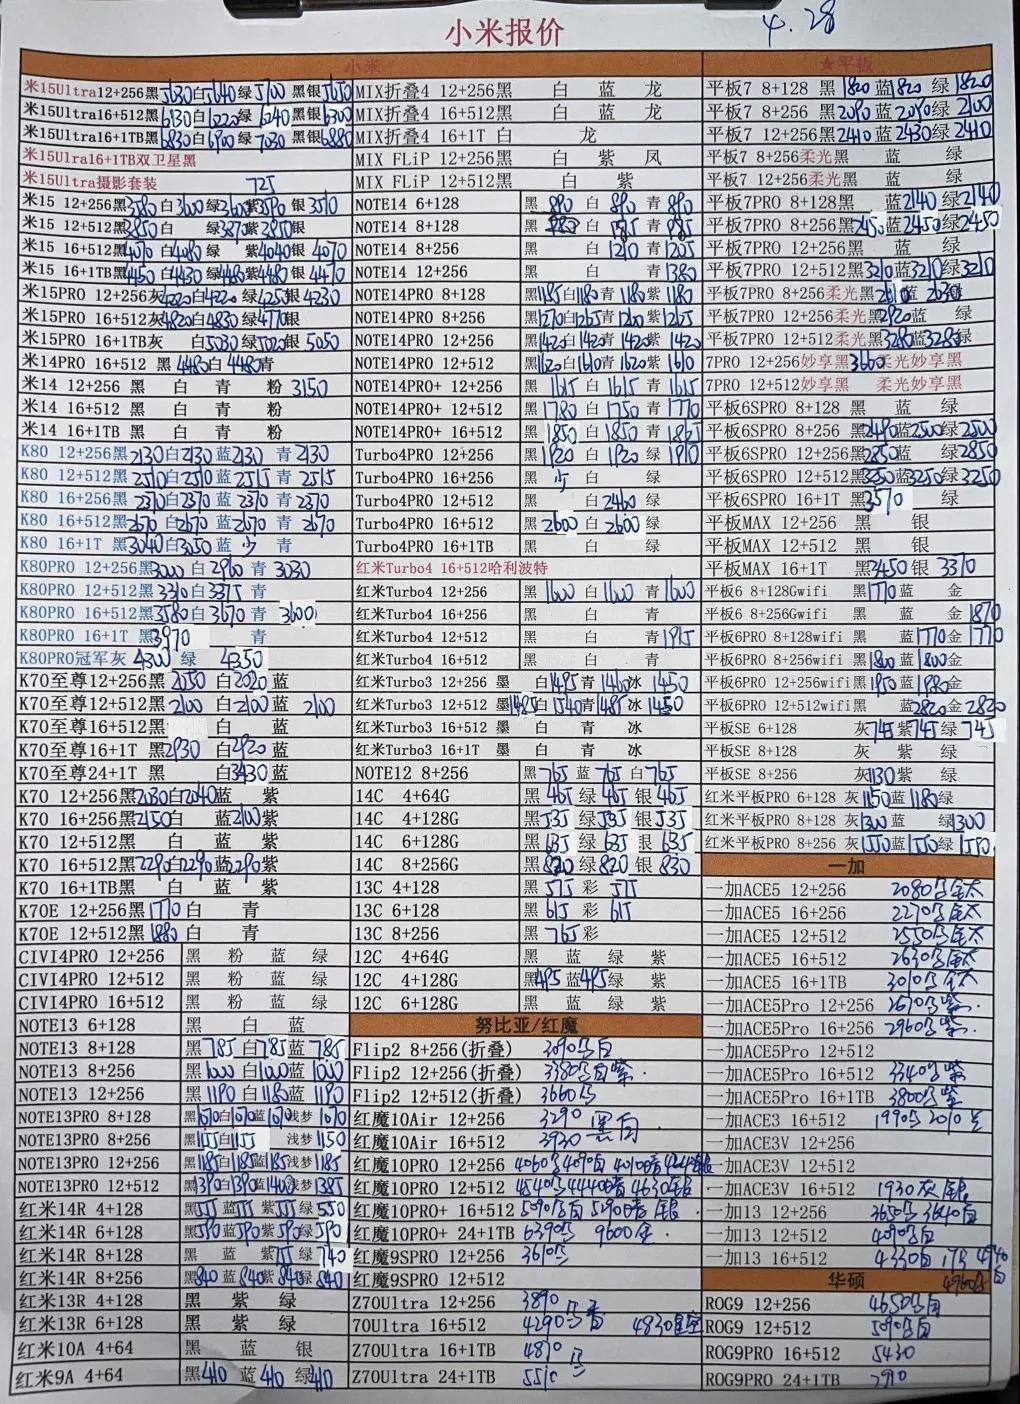 小米报价
4.28
小米
米15Ultra12+256黑5630白5640绿5700 黑银5650
米15Ultra16+512黑6130白6220绿6240黑银6300
米15Ultra16+1TB黑6830白6900绿7030黑银6880
米15Ulra16+1TB双卫星黑
米15Ultra摄影套装 725
米15 12+256黑3580白3600绿3600紫3590 银3570
米15 12+512黑3850白 绿3870紫3850银
米15 16+512黑4070白4080绿 紫4040银4070
米15 16+1TB黑4450白4430绿4480紫4480银4470
米15PRO 12+256灰4220白4220绿4250银4230
米15PRO 16+512灰4820白4830绿4770银
米15PRO 16+1TB灰 白5030绿5020银5050
米14PRO 16+512 黑4480白4480青
米14 12+256 黑 白 青 粉3150
米14 16+512 黑 白 青 粉
米14 16+1TB 黑 白 青 粉
K80 12+256黑2130白2130蓝2130 青2130
K80 12+512黑2510白2510蓝2515 青2515
K80 16+256黑2370白2370蓝2370青2370
K80 16+512黑2670白2670蓝2670青2670
K80 16+1T 黑3040白3050蓝 少 青
K80PRO 12+256黑3000白2960 青3030
K80PRO 12+512黑3370白3375青
K80PRO 16+512黑3580白3670 青3600
K80PRO 16+1T 黑3970 青
K80PRO冠军灰4300绿 4350
K70至尊12+256黑2050 白2020蓝
K70至尊12+512黑2100 白2100蓝 2100
K70至尊16+512黑 白 蓝
K70至尊16+1T 黑2930 白2920蓝
K70至尊24+1T 黑 白3430蓝
K70 12+256黑2030白2040蓝 紫
K70 16+256黑2150白 蓝2100紫
K70 12+512黑 白 蓝 紫
K70 16+512黑2290白2290蓝2290紫
K70 16+1TB黑 白 蓝 紫
K70E 12+256黑1770白 青
K70E 12+512黑1880白 青
CIVI4PRO 12+256 黑 粉 蓝 绿
CIVI4PRO 12+512 黑 粉 蓝 绿
CIVI4PRO 16+512 黑 粉 蓝 绿
NOTE13 6+128 黑 白 蓝
NOTE13 8+128 黑785白785蓝785
NOTE13 8+256 黑1000白1000蓝1000
NOTE13 12+256 黑1190白1180蓝1190
NOTE13PRO 8+128 黑1070白1070蓝1070浅梦1070
NOTE13PRO 8+256 黑1155白1155 浅梦1150
NOTE13PRO 12+256 黑1185白1185蓝1185浅梦1185
NOTE13PRO 12+512 黑1390白1390蓝1400浅梦1385
红米14R 4+128 黑555蓝555紫555绿550
红米14R 6+128 黑590蓝590紫590绿590
红米14R 8+128 黑 蓝 紫 绿740
红米14R 8+256 黑840蓝840紫840绿840
红米13R 4+128 黑 紫 绿
红米13R 6+128 黑 紫 绿
红米10A 4+64 黑 蓝 银
红米9A 4+64 黑410 蓝410 绿410
MIX折叠4 12+256黑 白 蓝 龙
MIX折叠4 16+512黑 白 蓝 龙
MIX折叠4 16+1T 白 龙
MIX FLiP 12+256黑 白 紫 凤
MIX FLiP 12+512黑 白 紫
NOTE14 6+128 黑890白890青890
NOTE14 8+128 黑 白 青985
NOTE14 8+256 黑 白1210青1205
NOTE14 12+256 黑 白 青1380
NOTE14PRO 8+128 黑1185白1180青1180紫1180
NOTE14PRO 8+256 黑1270白1265青1260紫1265
NOTE14PRO 12+256 黑1420白1420青1420紫1420
NOTE14PRO 12+512 黑1620白1610青1620紫1610
NOTE14PRO+ 12+256 黑1615白1615青1615
NOTE14PRO+ 12+512 黑1780白1750青1770
NOTE14PRO+ 16+512 黑1850白1850青1865
Turbo4PRO 12+256 黑1920白1920绿1910
Turbo4PRO 16+256 黑少 白 绿
Turbo4PRO 12+512 黑 白2460绿
Turbo4PRO 16+512 黑2600白2600绿
Turbo4PRO 16+1TB 黑 白 绿
红米Turbo4 16+512哈利波特
红米Turbo4 12+256 黑1600白1600青1600
红米Turbo4 16+256 黑 白 青
红米Turbo4 12+512 黑 白 青1915
红米Turbo4 16+512 黑 白 青
红米Turbo3 12+256 墨 白1495青1460冰1450
红米Turbo3 12+512 墨1485白1540青1485冰1450
红米Turbo3 16+512 墨 白 青 冰
红米Turbo3 16+1T 墨 白 青 冰
NOTE12 8+256 黑765蓝765白765
14C 4+64G 黑465绿465银465
14C 4+128G 黑535绿535银535
14C 6+128G 黑635绿635银635
14C 8+256G 黑820绿820银830
13C 4+128 黑575彩575
13C 6+128 黑615彩615
13C 8+256 黑765彩
12C 4+64G 黑 蓝 绿 紫
12C 4+128G 黑495蓝495绿 紫
12C 6+128G 黑 蓝 绿 紫
努比亚/红魔
Flip2 8+256(折叠) 3090乌白
Flip2 12+256(折叠) 3380乌白紫
Flip2 12+512(折叠) 3660乌
红魔10Air 12+256 3290 黑白
红魔10Air 16+512 3930
红魔10PRO 12+256 4060
红魔10PRO 12+512 4540
红魔10PRO+ 16+512 5090
红魔10PRO+ 24+1TB 6390 9600
红魔9SPRO 12+256 3610
红魔9SPRO 12+512
Z70Ultra 12+256 3890
70Ultra 16+512 4290 4830星空
Z70Ultra 16+1TB 4870
Z70Ultra 24+1TB 5510
★平板
平板7 8+128 黑1820蓝1820 绿1820
平板7 8+256 黑2090蓝2090绿2100
平板7 12+256黑2410蓝2430绿2410
平板7 8+256柔光黑 蓝 绿
平板7 12+256柔光黑 蓝 绿
平板7PRO 8+128黑 蓝2140绿2140
平板7PRO 8+256黑2450蓝2450绿2450
平板7PRO 12+256黑 蓝 绿
平板7PRO 12+512黑3210蓝3210绿3210
平板7PRO 8+256柔光黑2610蓝2630绿
平板7PRO 12+256柔光黑2920蓝 绿
平板7PRO 12+512柔光黑3280蓝3280绿
7PRO 12+256妙享黑3660柔光妙享黑
7PRO 12+512妙享黑 柔光妙享黑
平板6SPRO 8+128 黑 蓝 绿
平板6SPRO 8+256 黑2490蓝2500绿2500
平板6SPRO 12+256黑2850蓝 绿2850
平板6SPRO 12+512黑3250蓝3250绿3250
平板6SPRO 16+1T 黑3570 绿
平板MAX 12+256 黑 银
平板MAX 12+512 黑 银
平板MAX 16+1T 黑3450银 3370
平板6 8+128Gwifi 黑1770蓝 金
平板6 8+256Gwifi 黑 蓝 金1870
平板6PRO 8+128wifi 黑 蓝1770金1770
平板6PRO 8+256wifi 黑1800蓝1800金
平板6PRO 12+256wifi黑1950蓝1980金
平板6PRO 12+512wifi黑 蓝2820金2820
平板SE 6+128 灰745紫745绿745
平板SE 8+128 灰 紫 绿
平板SE 8+256 灰1130紫 绿
红米平板PRO 6+128 灰1150蓝1180绿
红米平板PRO 8+128 灰1300蓝 绿1300
红米平板PRO 8+256 灰1550蓝1550绿1590
一加
一加ACE5 12+256 2080乌金太
一加ACE5 16+256 2270乌金太
一加ACE5 12+512 2550乌金太
一加ACE5 16+512 2630乌金太
一加ACE5 16+1TB 3010乌金太
一加ACE5Pro 12+256 2670乌紫
一加ACE5Pro 16+256 2960乌紫
一加ACE5Pro 12+512
一加ACE5Pro 16+512 3340乌紫
一加ACE5Pro 16+1TB 3800乌紫
一加ACE3 16+512 1990乌 2010
一加ACE3V 12+256
一加ACE3V 12+512
一加ACE3V 16+512 1930灰银
一加13 12+256 3650乌3640白
一加13 12+512 4090乌白
一加13 16+512 4330白
华硕 4960
ROG9 12+256 4650乌白
ROG9 12+512 5090乌白
ROG9PRO 16+512 5430
ROG9PRO 24+1TB 7910